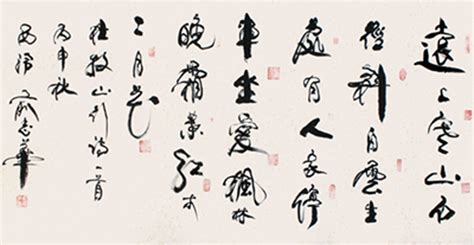 遠上寒山石
徑斜白雲生
處有人家停
車坐愛楓林
晚霜葉紅於
二月花
杜牧山行詩一首
丙申秋
西 志華